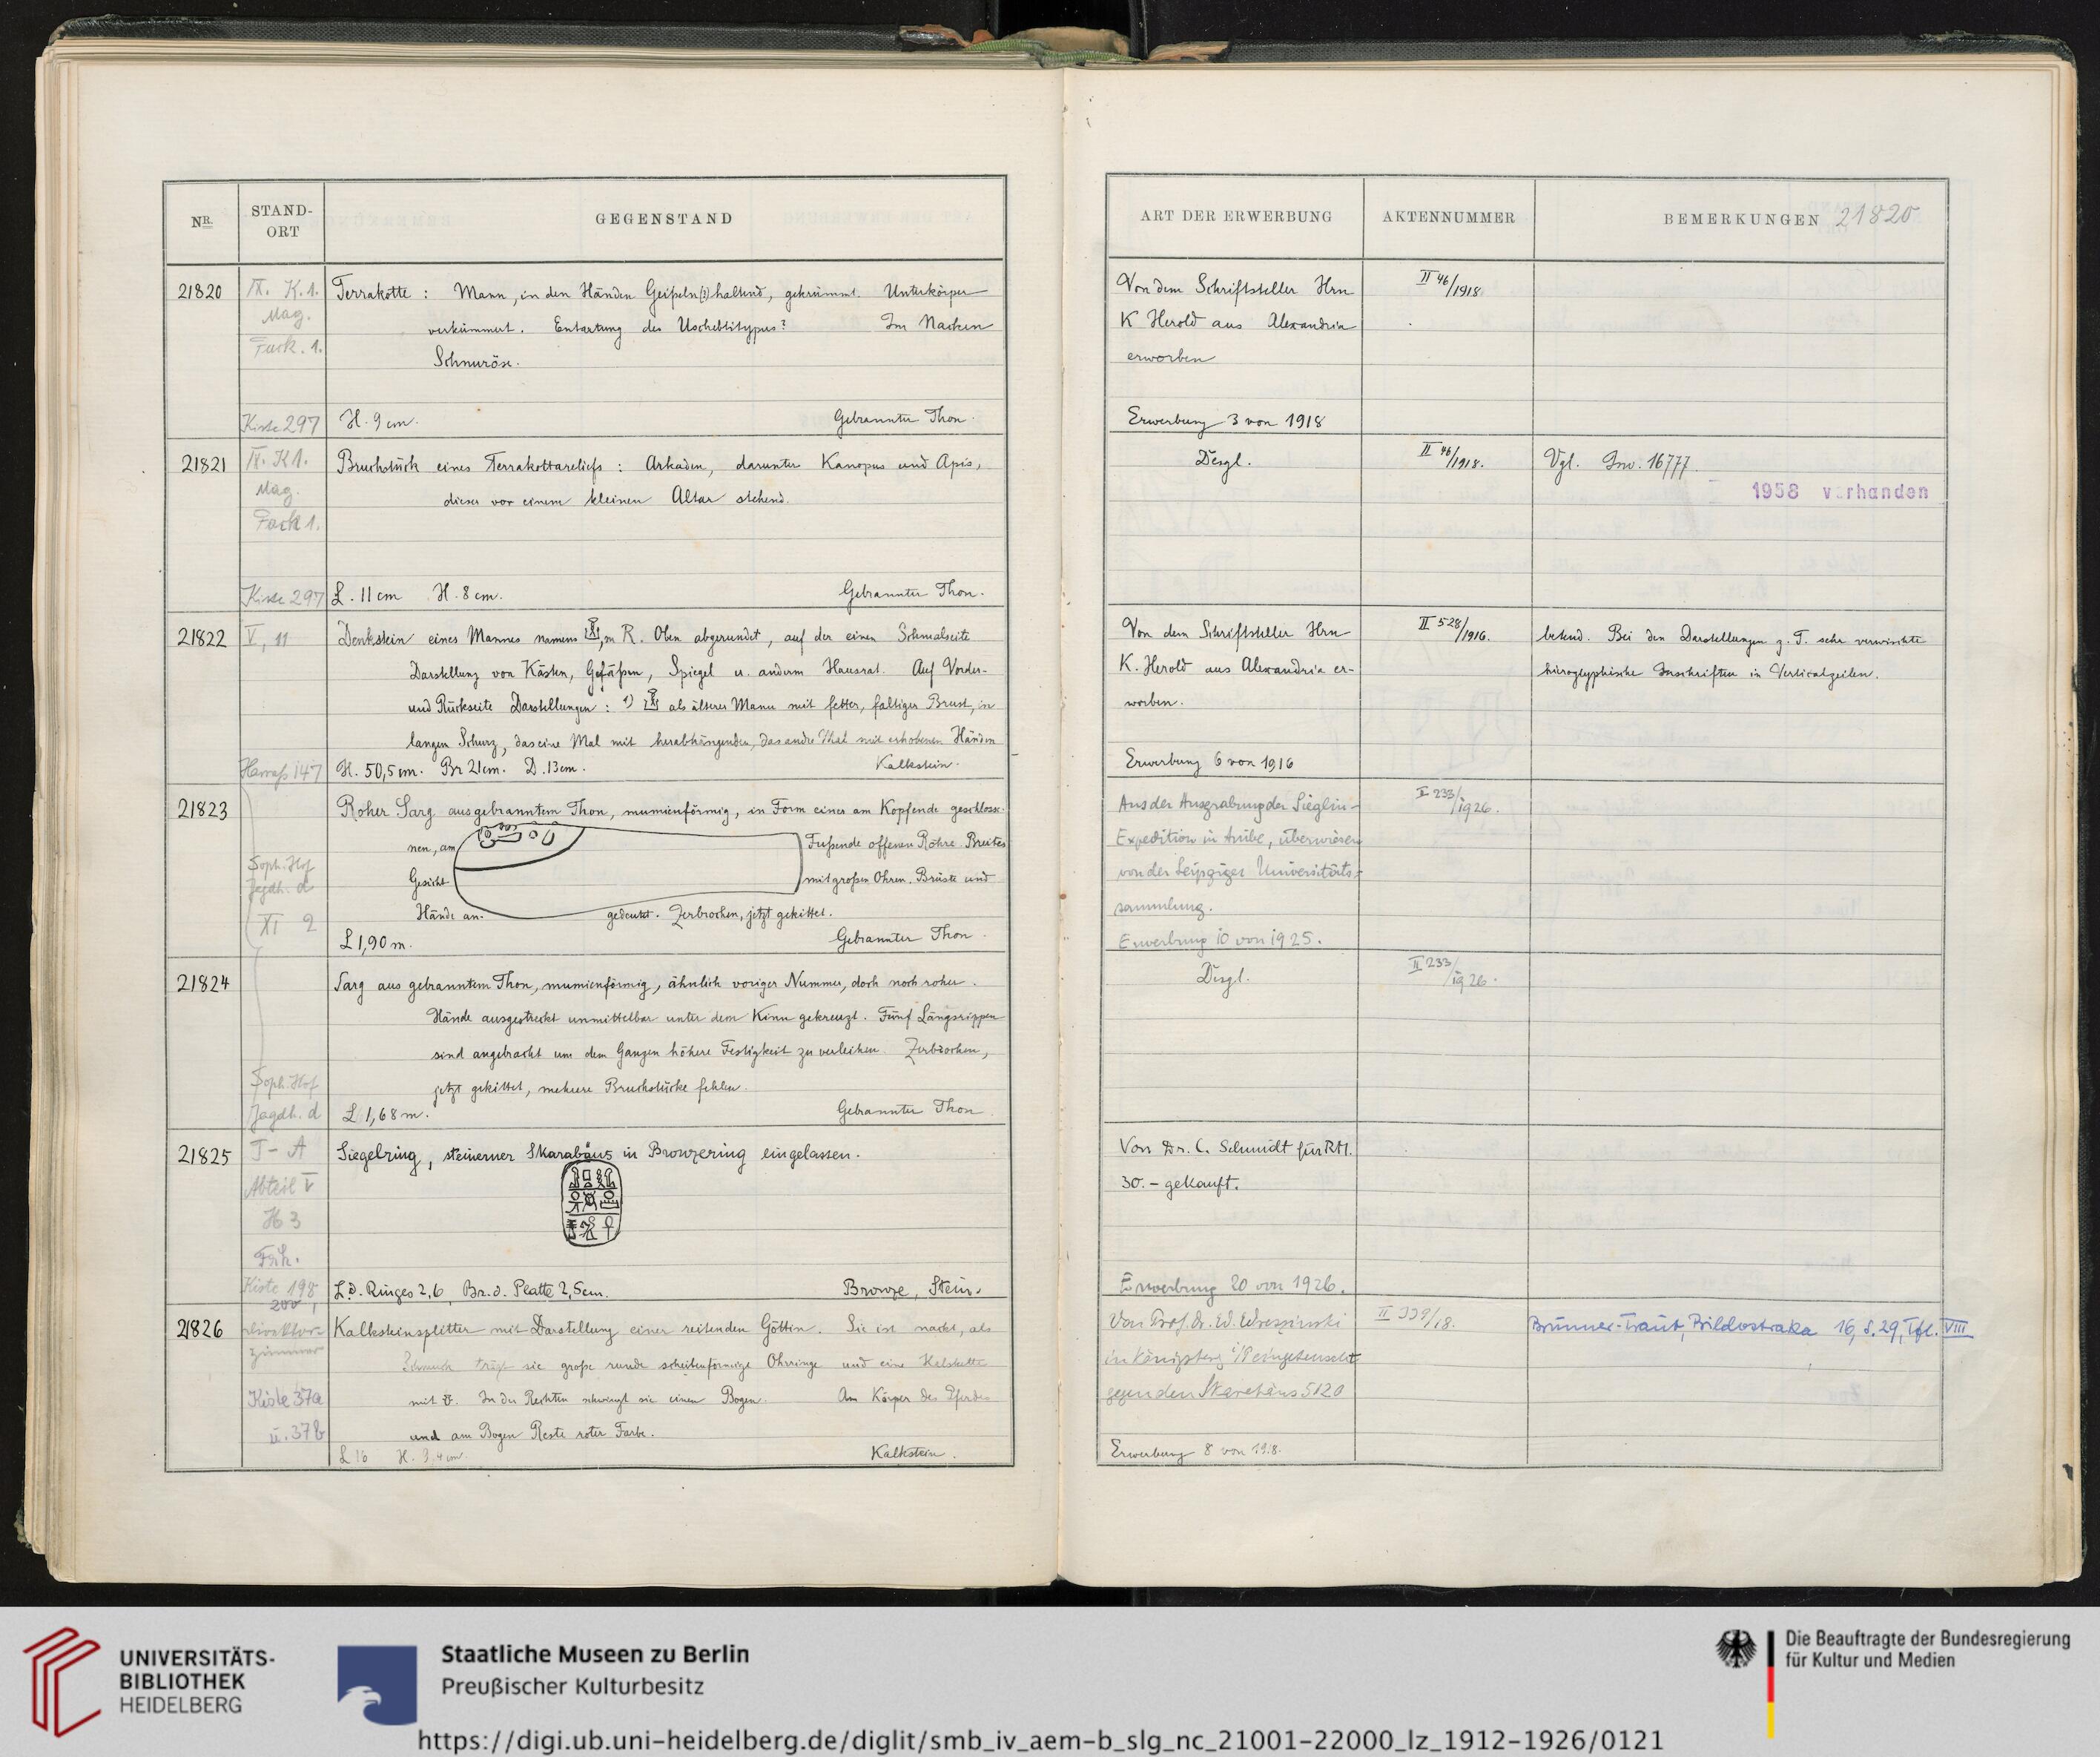 NR.
STAND-
ORT
GEGENSTAND
21820
IX. K.1.
Mag.
Fach. 1.
Kiste 297
Terrakotte : Mann, in den Händen Geißeln(?) haltend, gekrümmt. Unterkörper
verkümmert. Entartung des Uschebtitypus? Im Nacken
Schnuröse.
H. 9 cm. Gebrannter Thon.
21821
IX. K1.
Mag.
Fach 1.
Kiste 297
Bruchstück eines Terrakottareliefs : Arkaden, darunter Kanopus und Apis,
dieser vor einem kleinen Altar stehend.
L. 11 cm H. 8 cm. Gebrannter Thon.
21822
V, 11
Harrass 147
Denkstein eines Mannes namens m R. Oben abgerundet, auf der einen Schmalseite
Darstellung von Kästen, Gefäßen, Spiegel u. anderm Hausrat. Auf Vorder-
und Rückseite Darstellungen : 1) als älterer Mann mit fetter, faltiger Brust, in
langem Schurz, das eine Mal mit herabhängenden, das andre Mal mit erhobenen Händen
H. 50,5 cm. Br 21cm. D. 13cm. Kalkstein.
21823
Soph. Hof
Jagdh. d
XI 2
Roher Sarg aus gebranntem Thon, mumienförmig, in Form einer am Kopfende geschlosse-
nen, am Fußende offenen Röhre. Breites
Gesicht mit großen Ohren. Brüste und
Hände an- gedeutet. Zerbrochen, jetzt gekittet.
L 1,90 m. Gebrannter Thon.
21824
Soph. Hof
Jagdh. d
Sarg aus gebranntem Thon, mumienförmig, ähnlich voriger Nummer, doch noch roher.
Hände ausgestreckt unmittelbar unter dem Kinn gekreuzt. Fünf Längsrippen
sind angebracht um dem Ganzen höhere Festigkeit zu verleihen. Zerbrochen,
jetzt gekittet, mehrere Bruchstücke fehlen.
L 1,68 m. Gebrannter Thon
21825
T - A
Abteil V
H 3
Kiste 198
200
Siegelring, steinerner Skarabäus in Bronzering eingelassen.
L.d. Ringes 2,6, Br. d. Platte 2,5cm. Bronze, Stein.
21826
Direktor-
zimmer
Kiste 37a
u. 37b
Kalksteinsplitter mit Darstellung einer reitenden Göttin. Sie ist nackt, als
Schmuck trägt sie große runde scheibenförmige Ohrringe und eine Halskette
mit . In der Rechten schwingt sie einen Bogen. Am Körper des Pferdes
und am Bogen Reste roter Farbe.
L 16 H. 3,4 cm. Kalkstein.
ART DER ERWERBUNG
AKTENNUMMER
BEMERKUNGEN 21820
Von dem Schriftsteller Hrn
K Herold aus Alexandria
erworben
Erwerbung 3 von 1918
II 46/1918.
Desgl.
II 46/1918.
Vgl. Inv. 16777.
1958 v rhanden
Von dem Schriftsteller Hrn
K. Herold aus Alexandria er-
worben.
Erwerbung 6 von 1916
II 528/1916.
betend. Bei den Darstellungen z. T. sehr verwischte
hieroglyphische Inschriften in Verticalzeilen.
Aus der Ausgrabung der Sieglin-
Expedition in Anibe, überwiesen
von der Leipziger Universitäts-
sammlung.
Erwerbung 10 von 1925.
II 233/1926.
Desgl.
II 233/1926.
Von Dr. C. Schmidt für RM.
30.- gekauft.
Erwerbung 20 von 1926.
Von Prof. Dr. W. Wreszinski
in Königsberg i/P eingetauscht
gegen den Skarabäus 5120
Erwerbung 8 von 1918.
II 339/18.
Brunner-Traut, Bildostraka 16, S. 29, Tfl. VIII
UNIVERSITÄTS-
BIBLIOTHEK
HEIDELBERG
Staatliche Museen zu Berlin
Preußischer Kulturbesitz
Die Beauftragte der Bundesregierung
für Kultur und Medien
https://digi.ub.uni-heidelberg.de/diglit/smb_iv_aem-b_slg_nc_21001-22000_lz_1912-1926/0121